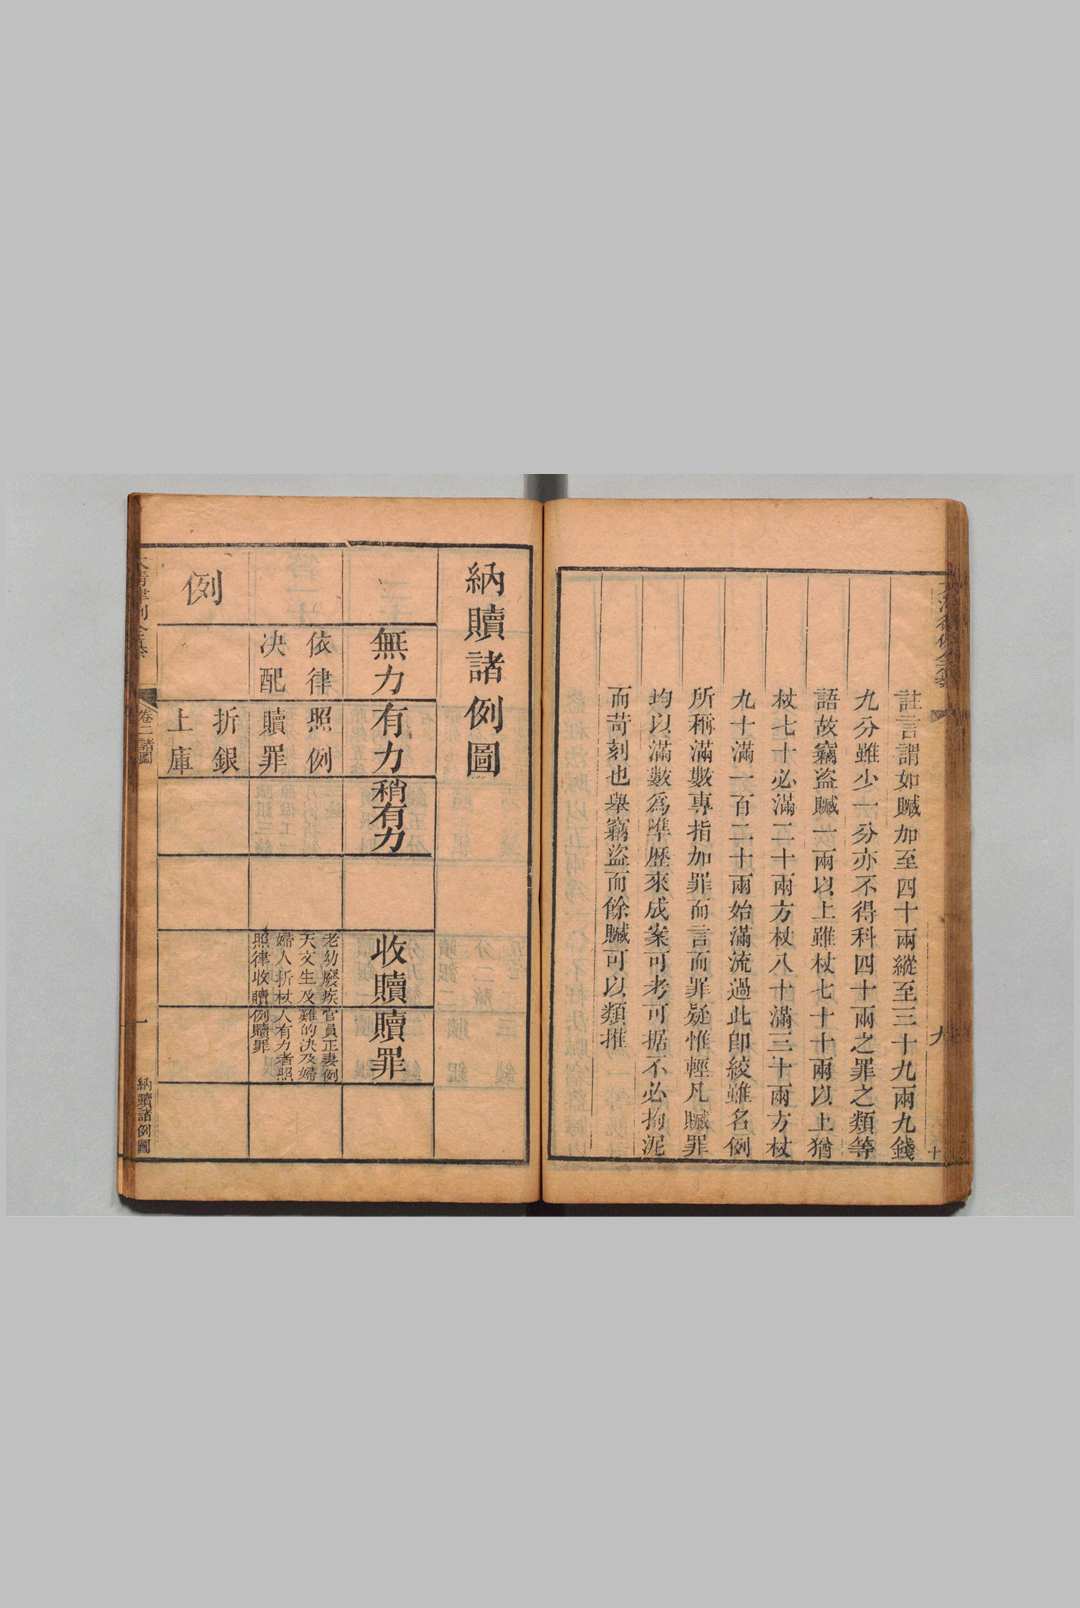 註言謂如贓加至四十兩縱至三十九兩九錢
九分雖少一分亦不得科四十兩之罪之類等
語故竊盜贓一兩以上雖杖七十十兩以上猶
杖七十必滿二十兩方杖八十滿三十兩方杖
九十滿一百二十兩始滿流過此即絞雖名例
所稱滿數專指加罪而言而罪疑惟輕凡贓罪
均以滿數為準歷來成案可考可据不必拘泥
而苛刻也舉竊盜而餘贓可以類推
九
十
納贖諸例圖
無力
有力
稍有力
收贖
贖罪
依律
決配
照例
贖罪
老幼廢疾
天文生及
婦人折杖
照律收贖
官員正妻例
難的決及婦
人有力者照
例贖罪
例
折銀
上庫
卷二諸圖
一
納贖諸例圖